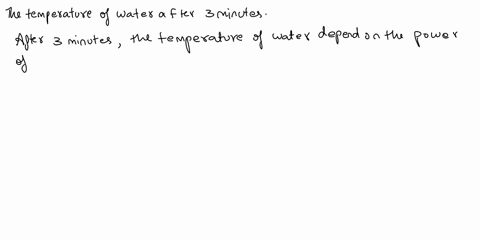 The temperature of water after 3 minutes.
After 3 minutes, the temperature of water depend on the power
of